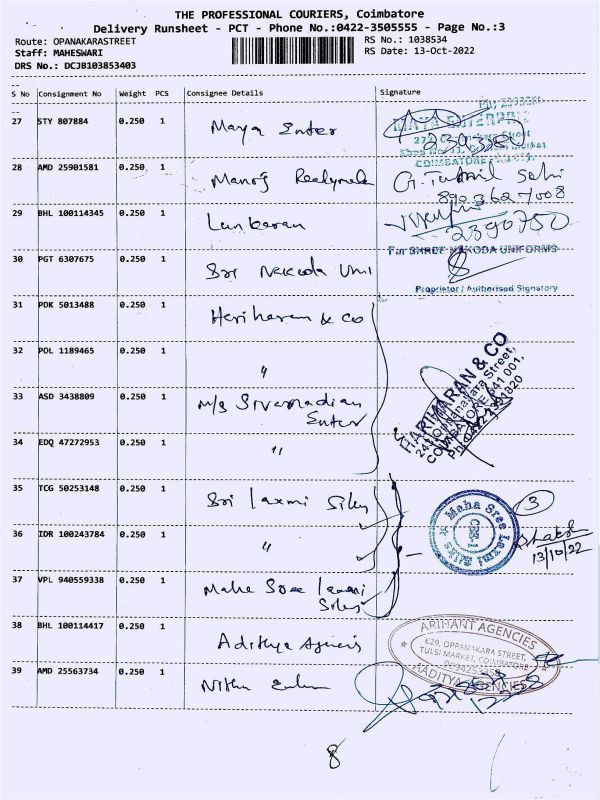 THE PROFESSIONAL COURIERS, Coimbatore
Delivery Runsheet - PCT - Phone No.:0422-3505555 - Page No.:3
Route: OPANAKARASTREET RS No.: 1038534
Staff: MAHESWARI RS Date: 13-Oct-2022
DRS No.: DCJB103853403
S No Consignment No Weight PCS Consignee Details Signature
27 STY 807884 0.250 1 Maya Enter
MAYA ENTERPRI
COIMBATORE
28 AMD 25901581 0.250 1 Manoj Readymade
8903627008
29 BHL 100114345 0.250 1 Lankaran
2390750
30 PGT 6307675 0.250 1 Sri Nakoda Uni
For SHREE NAKODA UNIFORMS
Proprietor / Authorised Signatory
31 PDK 5013488 0.250 1 Hariharan & co
32 POL 1189465 0.250 1 "
HARIHARAN & CO
Oppanakara Street,
COIMBATORE-641 001.
33 ASD 3438809 0.250 1 M/s Sivamadian
Enter
34 EDQ 47272953 0.250 1 "
35 TCG 50253148 0.250 1 Sri Laxmi Silks
3
Maha Sree Laxmi Silks
CBE-1
36 IDR 100243784 0.250 1 "
13/10/22
37 VPL 940559338 0.250 1 Maha Sree Laxmi
Silks
38 BHL 100114417 0.250 1 Adithya Agencis
ARIHANT AGENCIES
629, OPPANAKARA STREET,
TULSI MARKET, COIMBATORE
AADITYA AGENCIES
39 AMD 25563734 0.250 1 Nithu Enter
8